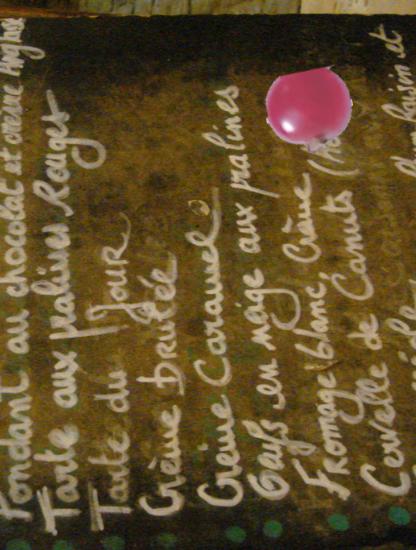 Fondant au chocolat et creme Anglaise
Tarte aux pralines Rouges
Tarte du Jour
Crème brulée
Crème Caramel
Oeufs en neige aux pralines
Fromage blanc Crème
Cervelle de Canuts
Raisin et